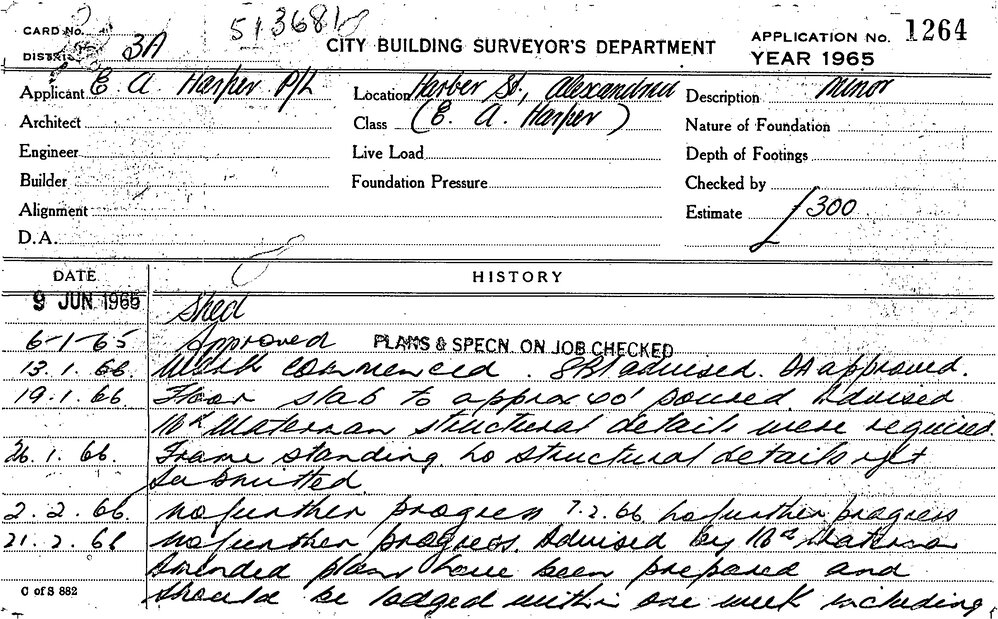 CARD No.
5136816
DISTRICT 3A
CITY BUILDING SURVEYOR'S DEPARTMENT
APPLICATION No. 1264
YEAR 1965
Applicant E. A. Harper P/L
Location Harber St., Alexandria
Description Minor
Architect
Class (E. A. Harper)
Nature of Foundation
Engineer
Live Load
Depth of Footings
Builder
Foundation Pressure
Checked by
Alignment
Estimate £300
D.A.
DATE HISTORY
9 JUN 1965 Shed
6-1-65 Approved PLANS & SPECN. ON JOB CHECKED
13.1.66. Work commenced. advised. DA approved.
19.1.66. Floor slab to approx 60' poured. Advised
Mr Waterman structural details were required.
26.1.66. Frame standing. No structural details yet
submitted.
2.2.66. No further progress 7.2.66. No further progress
21.2.66 No further progress. Advised by Mr Waterman
amended plans have been prepared and
C of S 882
should be lodged within one week including